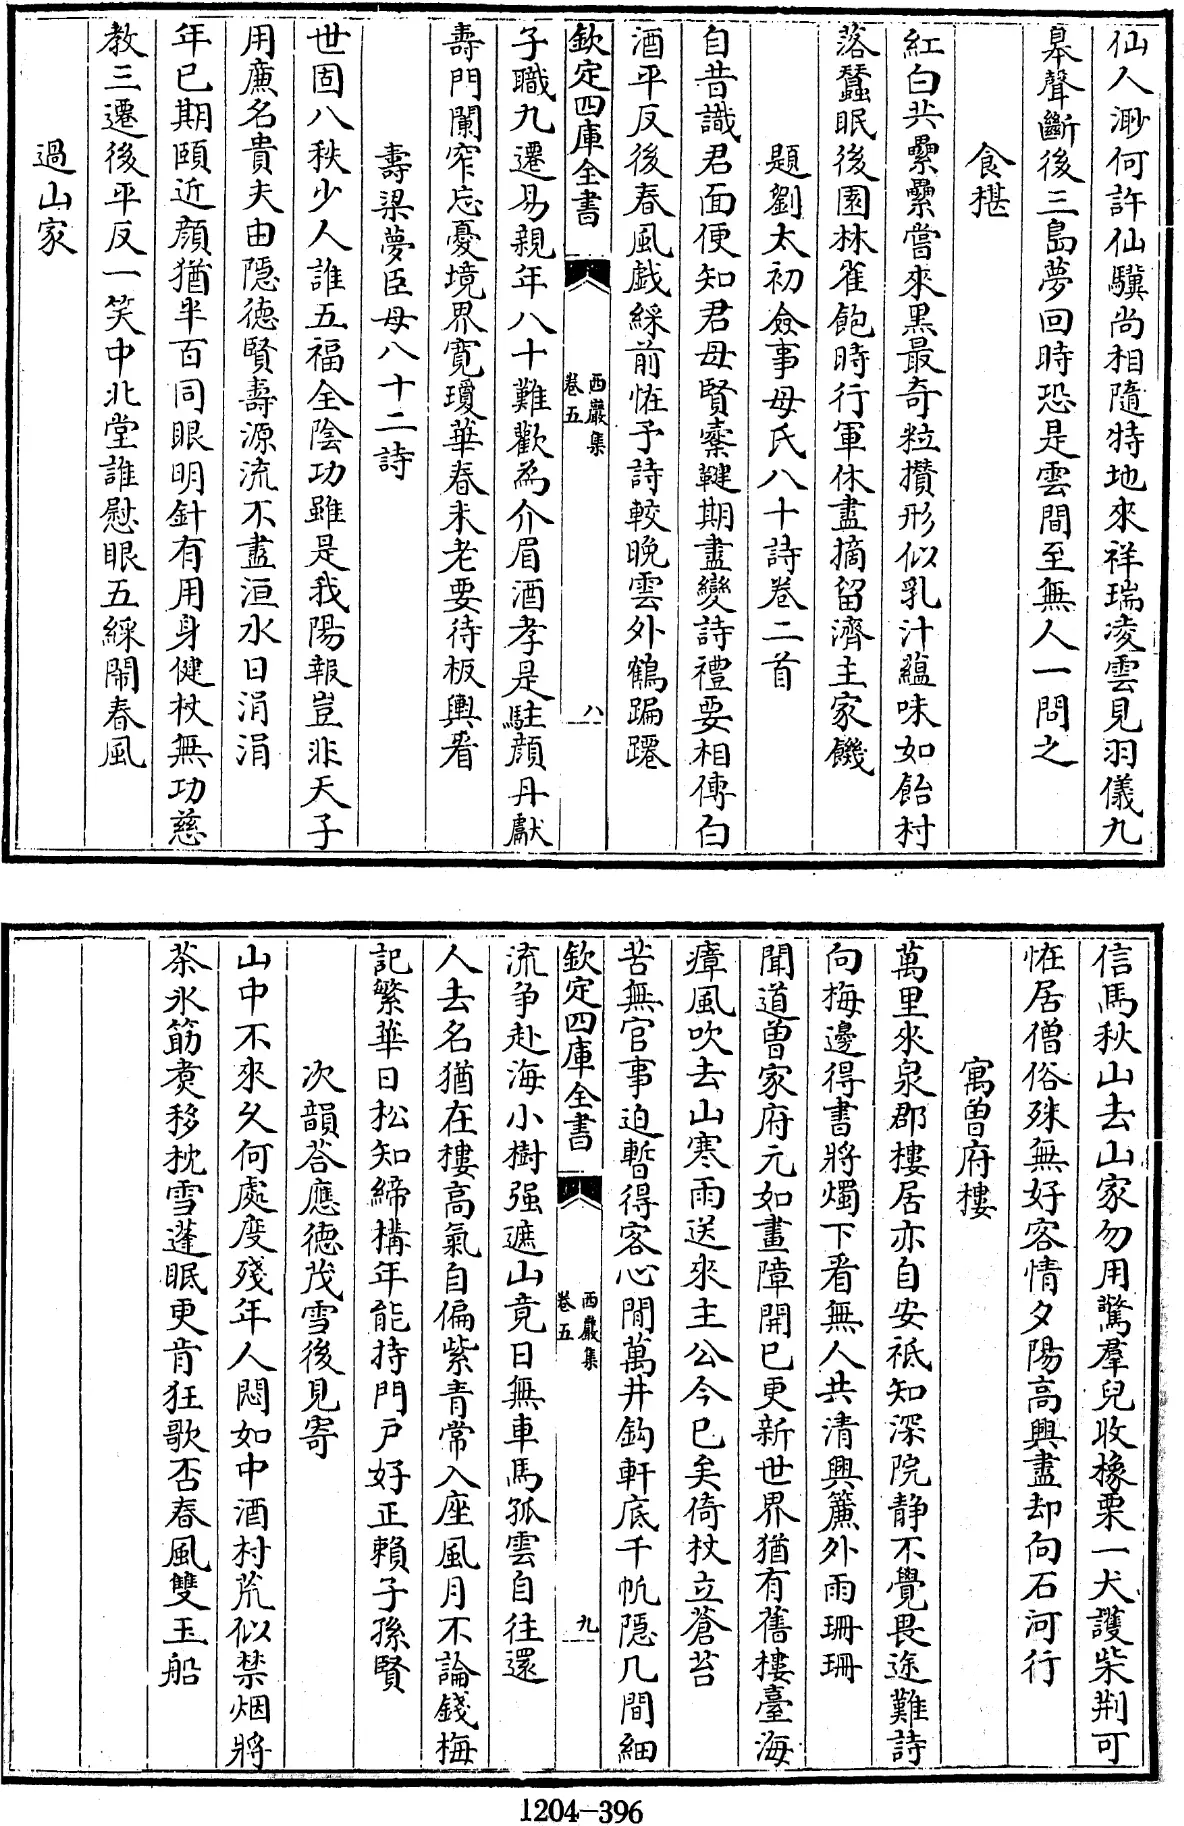 仙人渺何許仙驥尚相隨特地來祥瑞凌雲見羽儀九
皋聲斷後三島夢回時恐是雲間至無人一問之
食椹
紅白共纍纍嘗來黑最奇粒攢形似乳汁蘊味如飴村
落蠶眠後園林雀飽時行軍休盡摘留濟主家饑
題劉太初僉事母氏八十詩卷二首
自昔識君面便知君母賢櫜鞬期盡變詩禮要相傳白
酒平反後春風戱綵前恠予詩較晩雲外鶴蹁躚
欽定四庫全書
西巖集
卷五
八
子職九遷易親年八十難歡為介眉酒孝是駐顔丹獻
壽門闌窄忘憂境界寛瓊華春未老要待板輿㸔
壽梁夢臣母八十二詩
世固八秩少人誰五福全陰功雖是我陽報豈非天子
用亷名貴夫由隱徳賢壽源流不盡洹水日涓涓
年已期頤近顔猶半百同眼明針有用身健杖無功慈
教三遷後平反一笑中北堂誰慰眼五綵閙春風
過山家
信馬秋山去山家勿用驚羣兒收橡栗一犬護柴荆可
恠居僧俗殊無好容情夕陽高興盡却向石河行
寓曽府樓
萬里來泉郡樓居亦自安祗知深院静不覺畏途難詩
向梅邊得書將燭下㸔無人共清興簾外雨珊珊
聞道曽家府元如畫障開已更新世界猶有舊樓臺海
瘴風吹去山寒雨送來主公今已矣倚杖立蒼苔
苦無官事迫暫得客心閒萬井鈎軒底千㠶隠几間細
流争赴海小樹强遮山竟日無車馬孤雲自往還
欽定四庫全書
西巖集
卷五
九
人去名猶在樓高氣自偏紫青常入座風月不論錢梅
記繁華日松知締構年能持門戸好正賴子孫賢
次韻荅應徳茂雪後見寄
山中不來久何處度殘年人悶如中酒村荒似禁烟將
茶氷筯煑移枕雪蓬眠更肯狂歌否春風雙玉船
1204-396